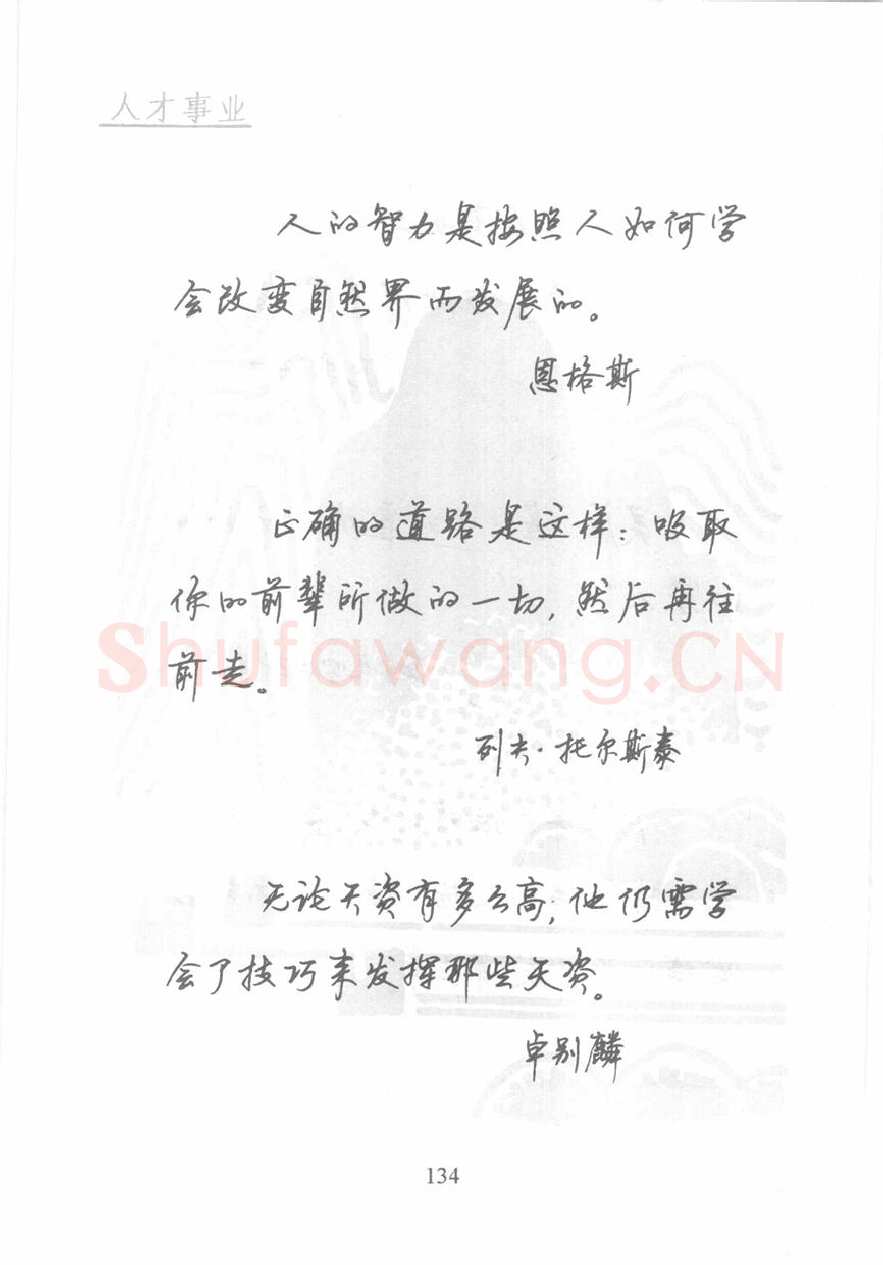 人才事业
人的智力是按照人如何学
会改变自然界而发展的。
恩格斯
正确的道路是这样：吸取
你的前辈所做的一切，然后再往
前走。
Shufawang.CN
列夫·托尔斯泰
无论天资有多么高，他仍需学
会了技巧来发挥那些天资。
卓别麟
134